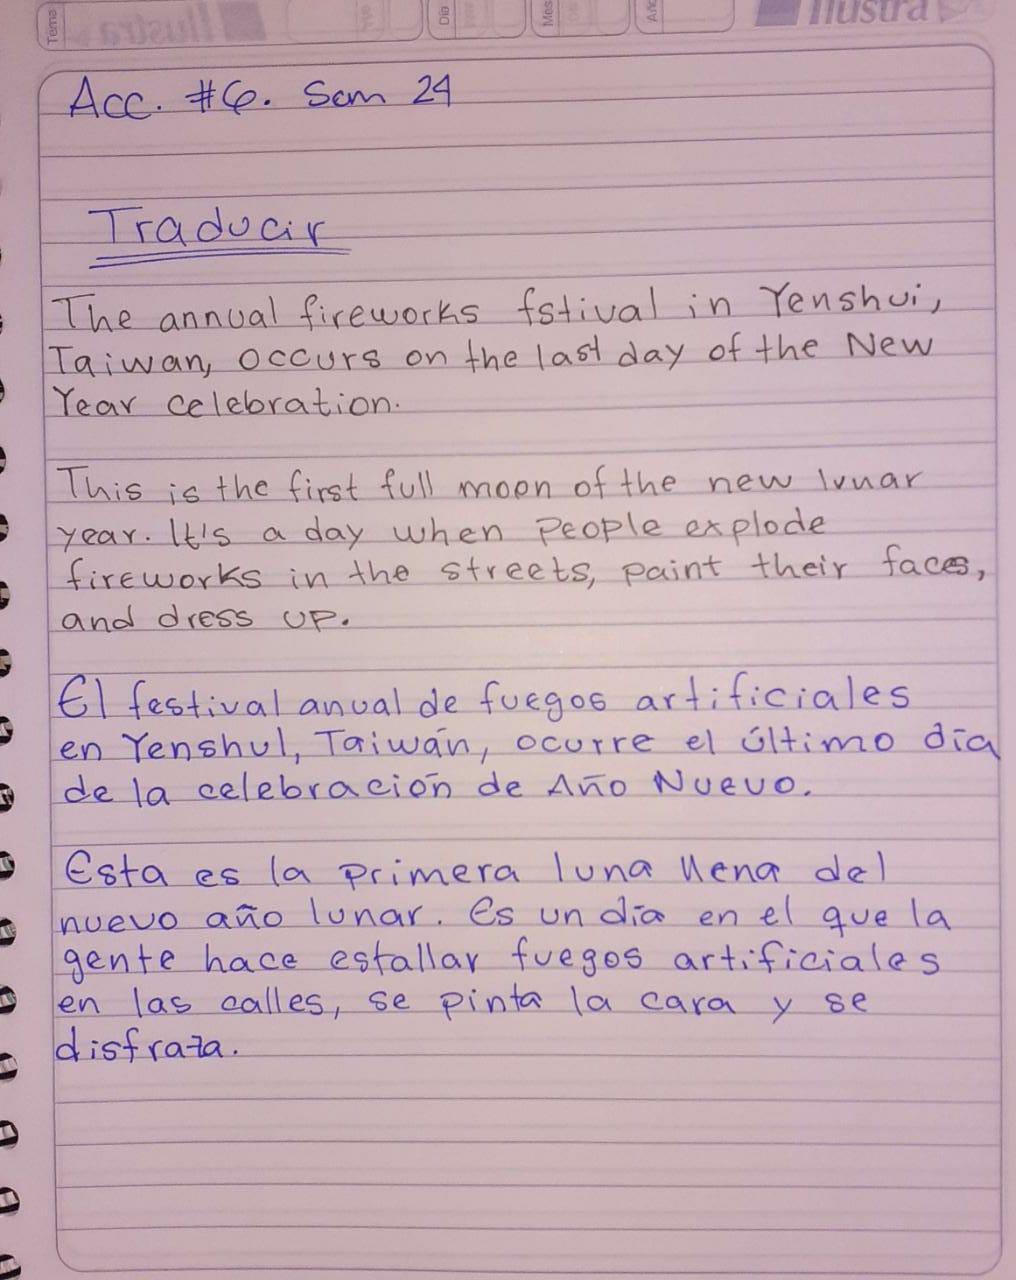 Tema
Día
Mes
Año
Ilustra
Acc. #6. Sem 24
Traducir
The annual fireworks fstival in Yenshui,
Taiwan, occurs on the last day of the New
Year celebration.
This is the first full moon of the new lunar
year. It's a day when people explode
fireworks in the streets, paint their faces,
and dress up.
El festival anual de fuegos artificiales
en Yenshul, Taiwán, ocurre el último día
de la celebración de Año Nuevo.
Esta es la primera luna llena del
nuevo año lunar. Es un día en el que la
gente hace estallar fuegos artificiales
en las calles, se pinta la cara y se
disfraza.